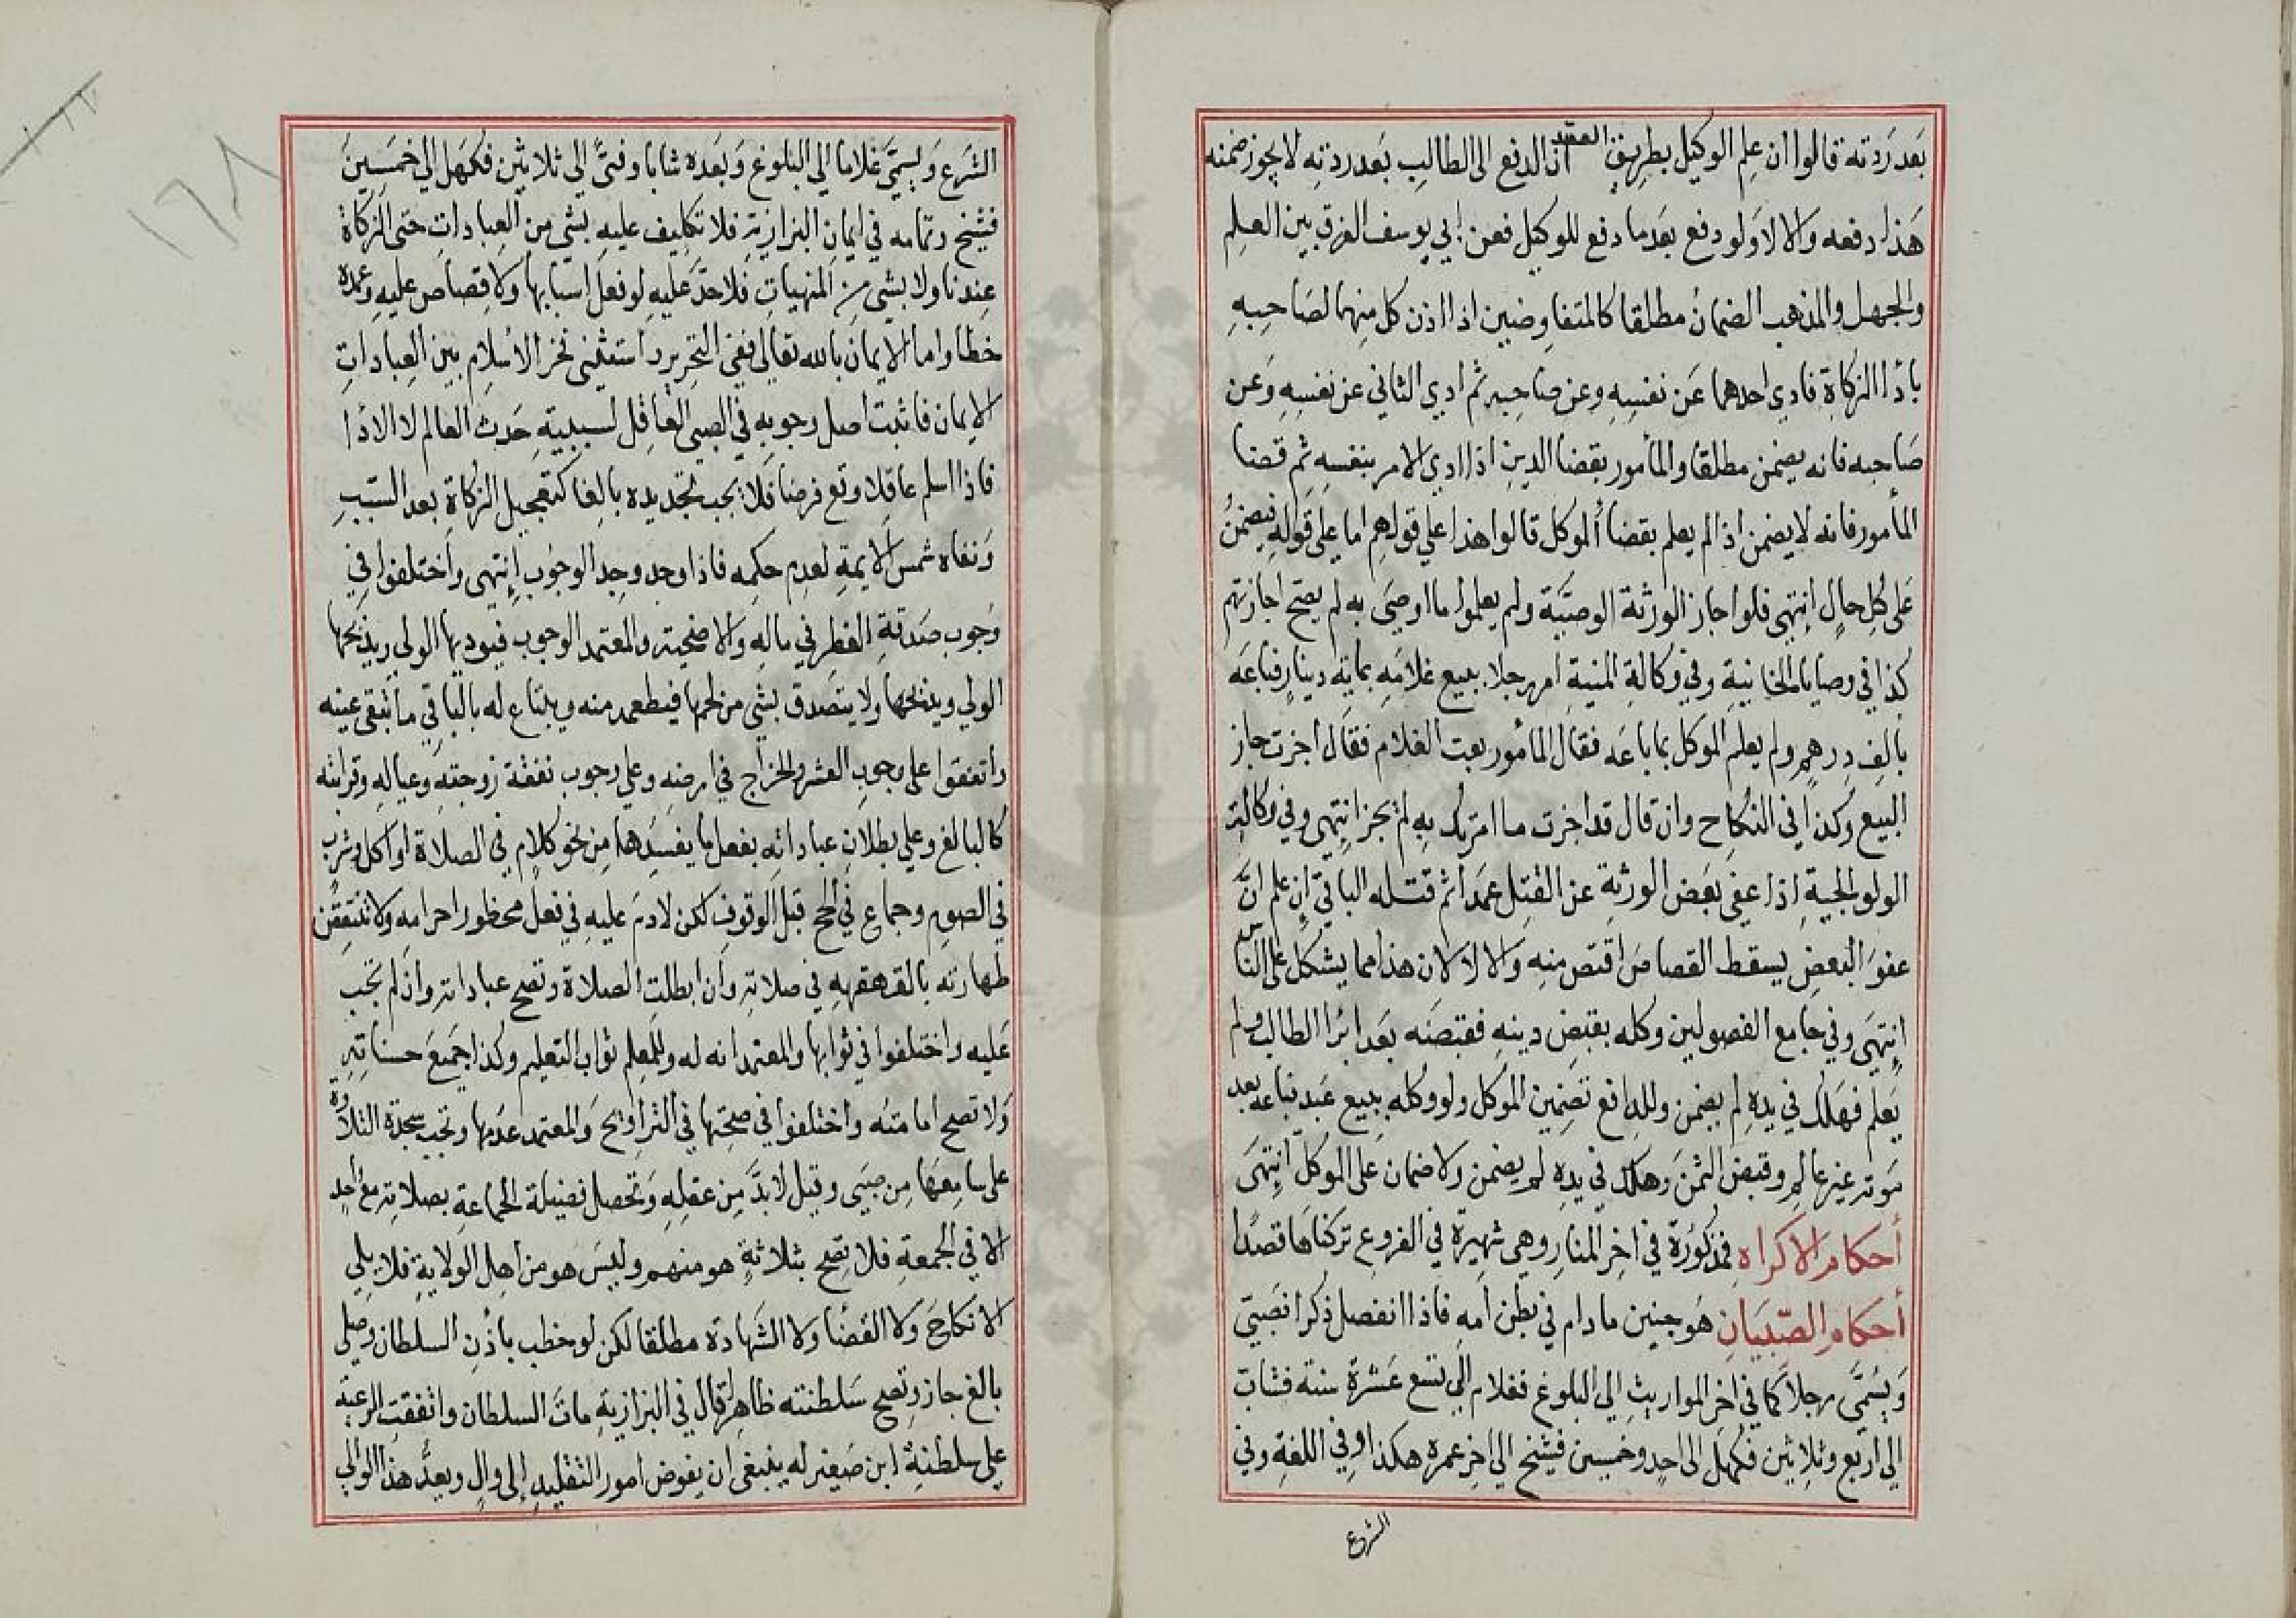 بعد ردته قالوا ان علم الوكيل بطريق العقد ان الدفع الى الطالب بعد ردته لا يجوز ضمنه
هذا دفعه والا لا ولو دفع بعد ما دفع للوكيل فعن ابي يوسف الفرق بين العلم
والجهل والمذهب الضمان مطلقا كالمتفاوضين اذا اذن كل منهما لصاحبه
بادا الزكاة فادي احدهما عن نفسه وعن صاحبه ثم ادي الثاني عن نفسه وعن
صاحبه فانه يضمن مطلقا والمأمور بقضا الدين اذا ادي الامر بنفسه ثم قضا
المأمور فانه لا يضمن اذا لم يعلم بقضا الموكل قالوا هذا علي قولهم اما علي قوله فيضمن
على كل حال انتهى فلو اجاز الورثة الوصية ولم يعلموا ما اوصى به لم يصح اجازتهم
كذا في وصايا الخانية وفي وكالة المنية امر رجلا ببيع غلامه بماية دينار فباعه
بالف درهم ولم يعلم الموكل بما باعه فقال المأمور بعت الغلام فقال اجزت جاز
البيع وكذا في النكاح وان قال قد اجزت ما امرتك به لم يجز انتهى وفي وكالة
الولوالجية اذا عفى بعض الورثة عن القتل عمدا ثم قتله الباقي ان علم ان
عفو البعض يسقط القصاص اقتص منه والا لا لان هذا مما يشكل على الناس
انتهى وفي جامع الفصولين وكله بقبض دينه فقبضه بعد ابرا الطالب ولم
يعلم فهلك في يده لم يضمن وللدافع تضمين الموكل ولو وكله ببيع عبد فباعه بعد
موته غير عالم وقبض الثمن وهلك في يده لم يضمن ولا ضمان على الموكل انتهى
أحكام الاكراه فمذكورة في اخر المنار وهي شهيرة في الفروع تركناها قصدا
أحكام الصبيان هو جنين ما دام في بطن امه فاذا انفصل ذكرا فصبي
ويسمى رجلا كما في اخر المواريث الي البلوغ فغلام الي تسع عشرة سنة فشاب
الي اربع وثلاثين فكهل الى احد وخمسين فشيخ الي اخر عمره هكذا في اللغة وفي
الشرع
١٦٨
الشرع ويسمى غلاما الي البلوغ وبعده شابا وفتى الي ثلاثين فكهل الي خمسين
فشيخ وتمامه في ايمان البزازية فلا تكليف عليه بشي من العبادات حتى الزكاة
عندنا ولا بشي من المنهيات فلا حد عليه لو فعل اسبابها ولا قصاص عليه وعمده
خطا واما الايمان بالله تعالى ففي التحرير واستثنى فخر الاسلام بين العبادات
الايمان فاثبت اصل وجوبه في الصبي العاقل لسببية حدث العالم لا الادا
فاذا اسلم عاقلا وقع فرضا فلا يجب تجديده بالغا كتعجيل الزكاة بعد السبب
ونفاه شمس الايمة لعدم حكمه فاذا وجد وجد الوجوب انتهى واختلفوا في
وجوب صدقة الفطر في ماله والاضحية والمعتمد الوجوب فيوديها الولي ويذبحها
الولي ويذبحها ولا يتصدق بشي من لحمها فيطعمه منه ويبتاع له بالباقي ما تبقى عينه
واتفقوا على وجوب العشر والخراج في ارضه وعلي وجوب نفقة زوجته وعياله وقرابته
كالبالغ وعلي بطلان عباداته بفعل ما يفسدها من نحو كلام في الصلاة او اكل وشرب
في الصوم وجماع في الحج قبل الوقوف لكن لا دم عليه في فعل محظور احرامه ولا تنتقض
طهارته بالقهقهة في صلاته وان ابطلت الصلاة وتصح عباداته وان لم تجب
عليه واختلفوا في ثوابها والمعتمد انه له وللمعلم ثواب التعليم وكذا جميع حسناته
ولا تصح امامته واختلفوا في صحتها في التراويح والمعتمد عدمها وتجب سجدة التلاوة
على سامعها من صبي وقيل لا بد من عقله وتحصل فضيلة الجماعة بصلاته مع واحد
الا في الجمعة فلا تصح بثلاثة هو منهم وليس هو من اهل الولاية فلا يلي
الا نكاح ولا القضا ولا الشهادة مطلقا لكن لو خطب باذن السلطان وصلى
بالغ جاز وتصح سلطنته ظاهرا قال في البزازية مات السلطان واتفقت الرعية
علي سلطنة ابن صغير له ينبغي ان يفوض امور التقليد الى وال ويعد هذا الوالي